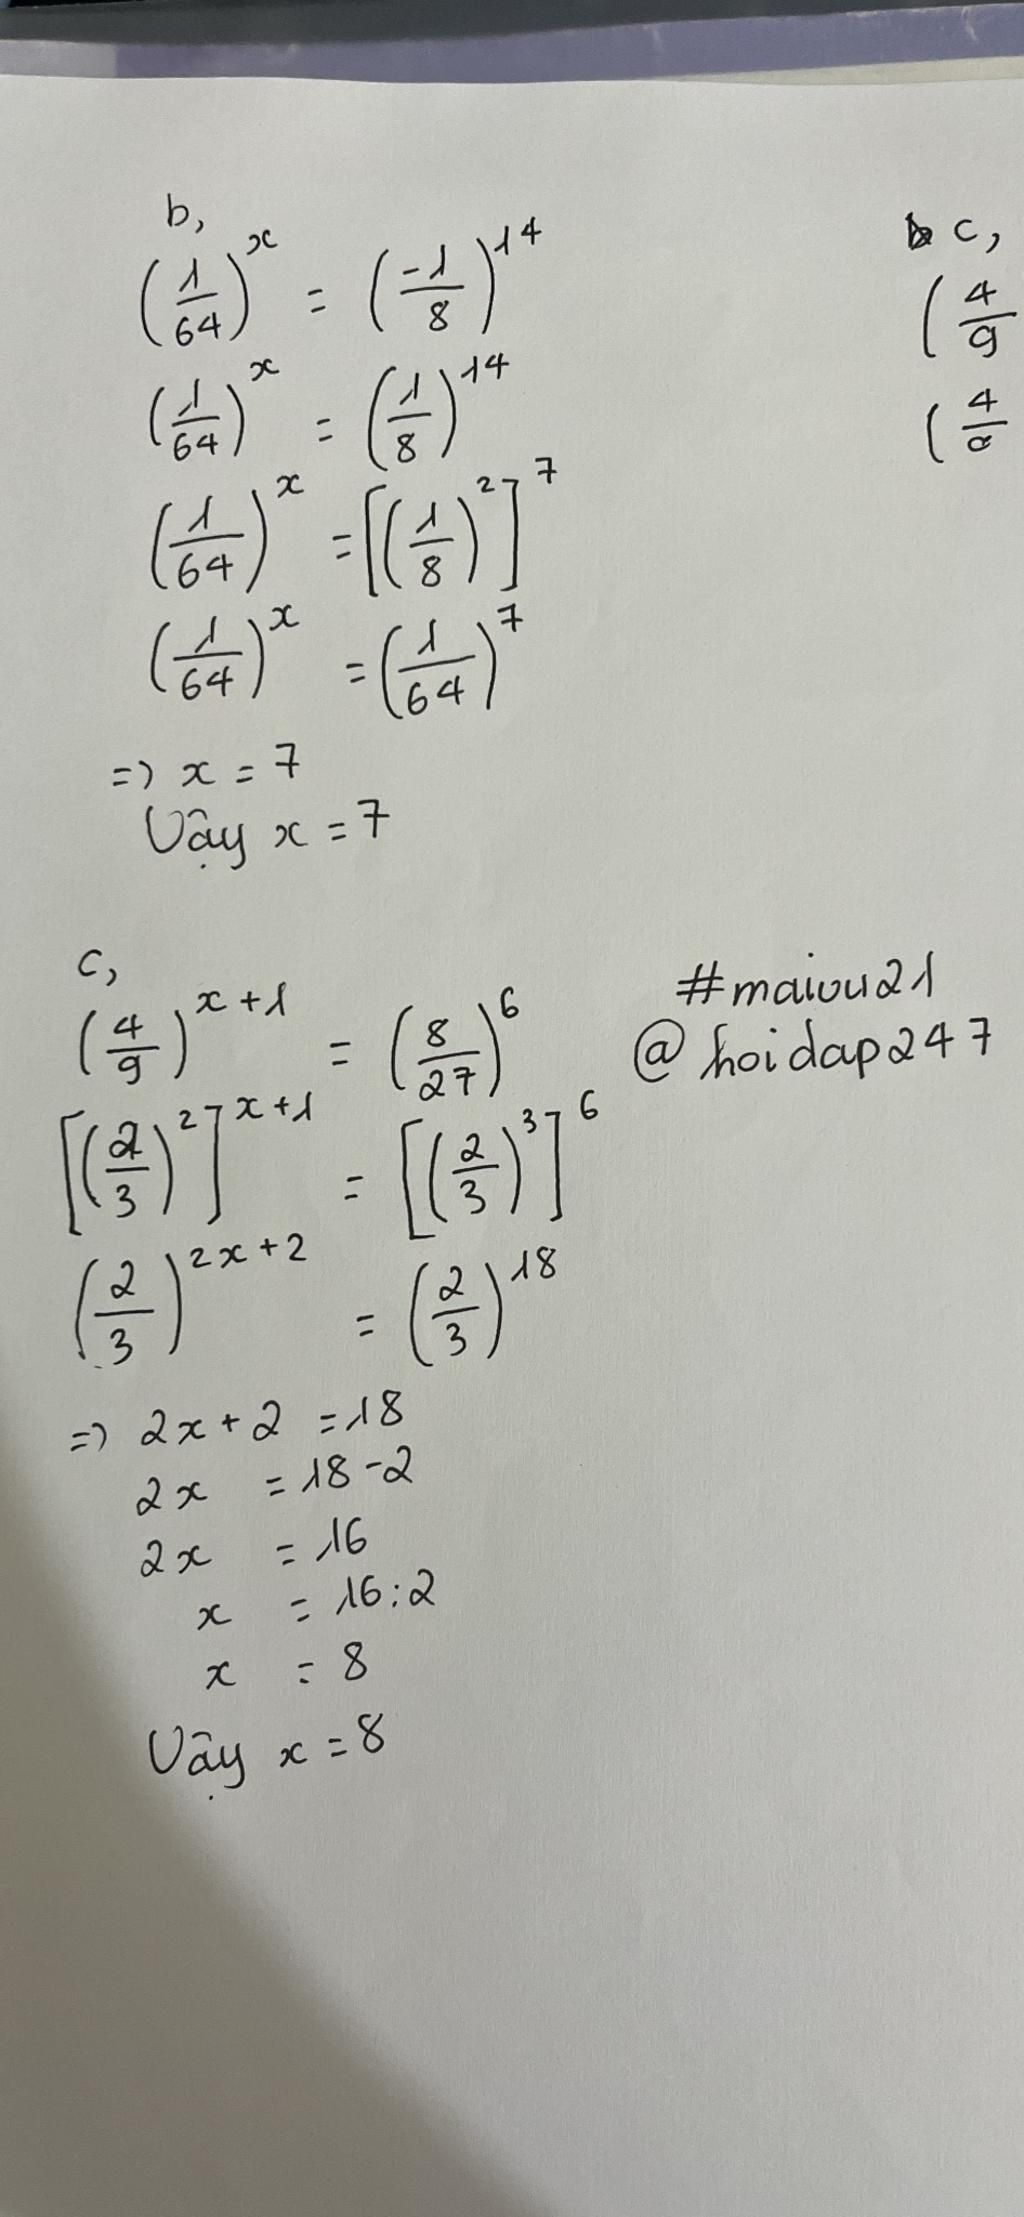 b,
(1/64)^x = (-1/8)^14
(1/64)^x = (1/8)^14
(1/64)^x = [(1/8)^2]^7
(1/64)^x = (1/64)^7
=> x = 7
Vậy x = 7
c,
(4/9)^(x+1) = (8/27)^6
[(2/3)^2]^(x+1) = [(2/3)^3]^6
(2/3)^(2x+2) = (2/3)^18
=> 2x + 2 = 18
2x = 18 - 2
2x = 16
x = 16 : 2
x = 8
Vậy x = 8
c,
(4/9
(4/
#maiouu21
@hoidap247